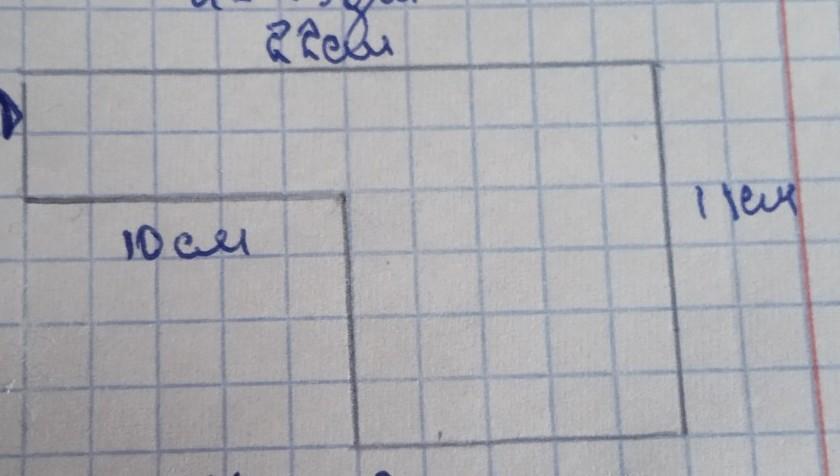 22см
11см
10 см